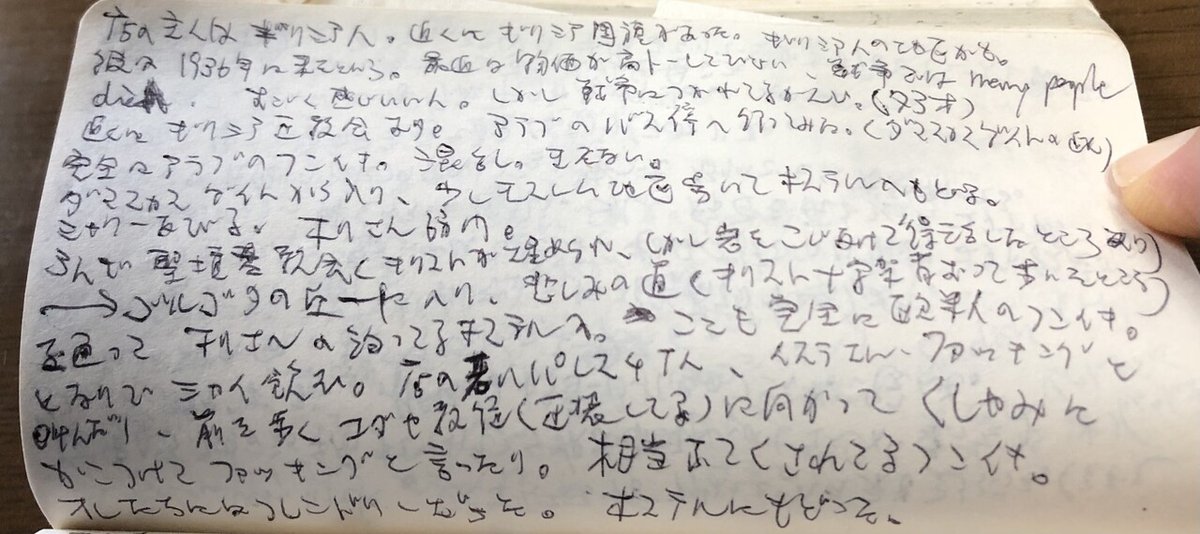 店の主人はギリシア人。近くにギリシア国旗があった。ギリシア人の
彼は1936年に来たという。最近は物価が高トーしてひどい、戦争では many people
died. すごく感じいい人。しかし戦争につかれてる
近くにギリシア正教会あり。アラブのバス停へ行ってみた。(ダマスカスゲイトの近く)
完全にアラブのフンイキ。混乱し。
ダマスカスゲイトから入り、少しモスレム地区歩いてホステルへもどる。
シャワーあびる。 訪問。
聖墳墓教会(キリストが埋められ、しかし岩をこじあけて復活したところあり)
→ゴルゴタの丘 に入り、悲しみの道(キリスト十字架背おって歩いたところ)
を通って の泊ってるホステルへ。ここも完全に欧米人のフンイキ。
となりで 飲む。店の若いパレスチナ人、イスラエル・ファッキングと
叫んだり、前を歩くユダヤ教徒( してる)に向かってくしゃみに
かこつけてファッキングと言ったり。相当ふてくされてるフンイキ。
オレたちにはフレンドリーだった。ホステルにもどった。